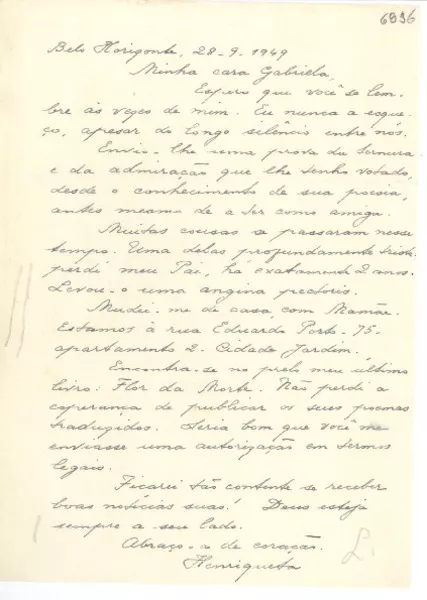 6996
Belo Horizonte, 28-9-1949
Minha cara Gabriela,
Espero que você se lem-
bre às vezes de mim. Eu nunca a esque-
ço, apesar do longo silêncio entre nós.
Envio-lhe uma prova da ternura
e da admiração que lhe tenho votado,
desde o conhecimento de sua poesia,
antes mesmo de a ter como amiga.
Muitas cousas se passaram nesse
tempo. Uma delas profundamente triste:
perdi meu Pai, há exatamente 2 anos.
Levou-o uma angina pectoris.
Mudei-me de casa, com Mamãe.
Estamos à rua Eduardo Porto-75-
apartamento 2- Cidade Jardim.
Encontra-se no prelo meu último
livro: Flor da Morte. Não perdi a
esperança de publicar os seus poemas
traduzidos. Seria bom que você me
enviasse uma autorização em termos
legais.
Ficarei tão contente se receber
boas notícias suas! Deus esteja
sempre a seu lado.
Abraço-a de coração.
Henriqueta